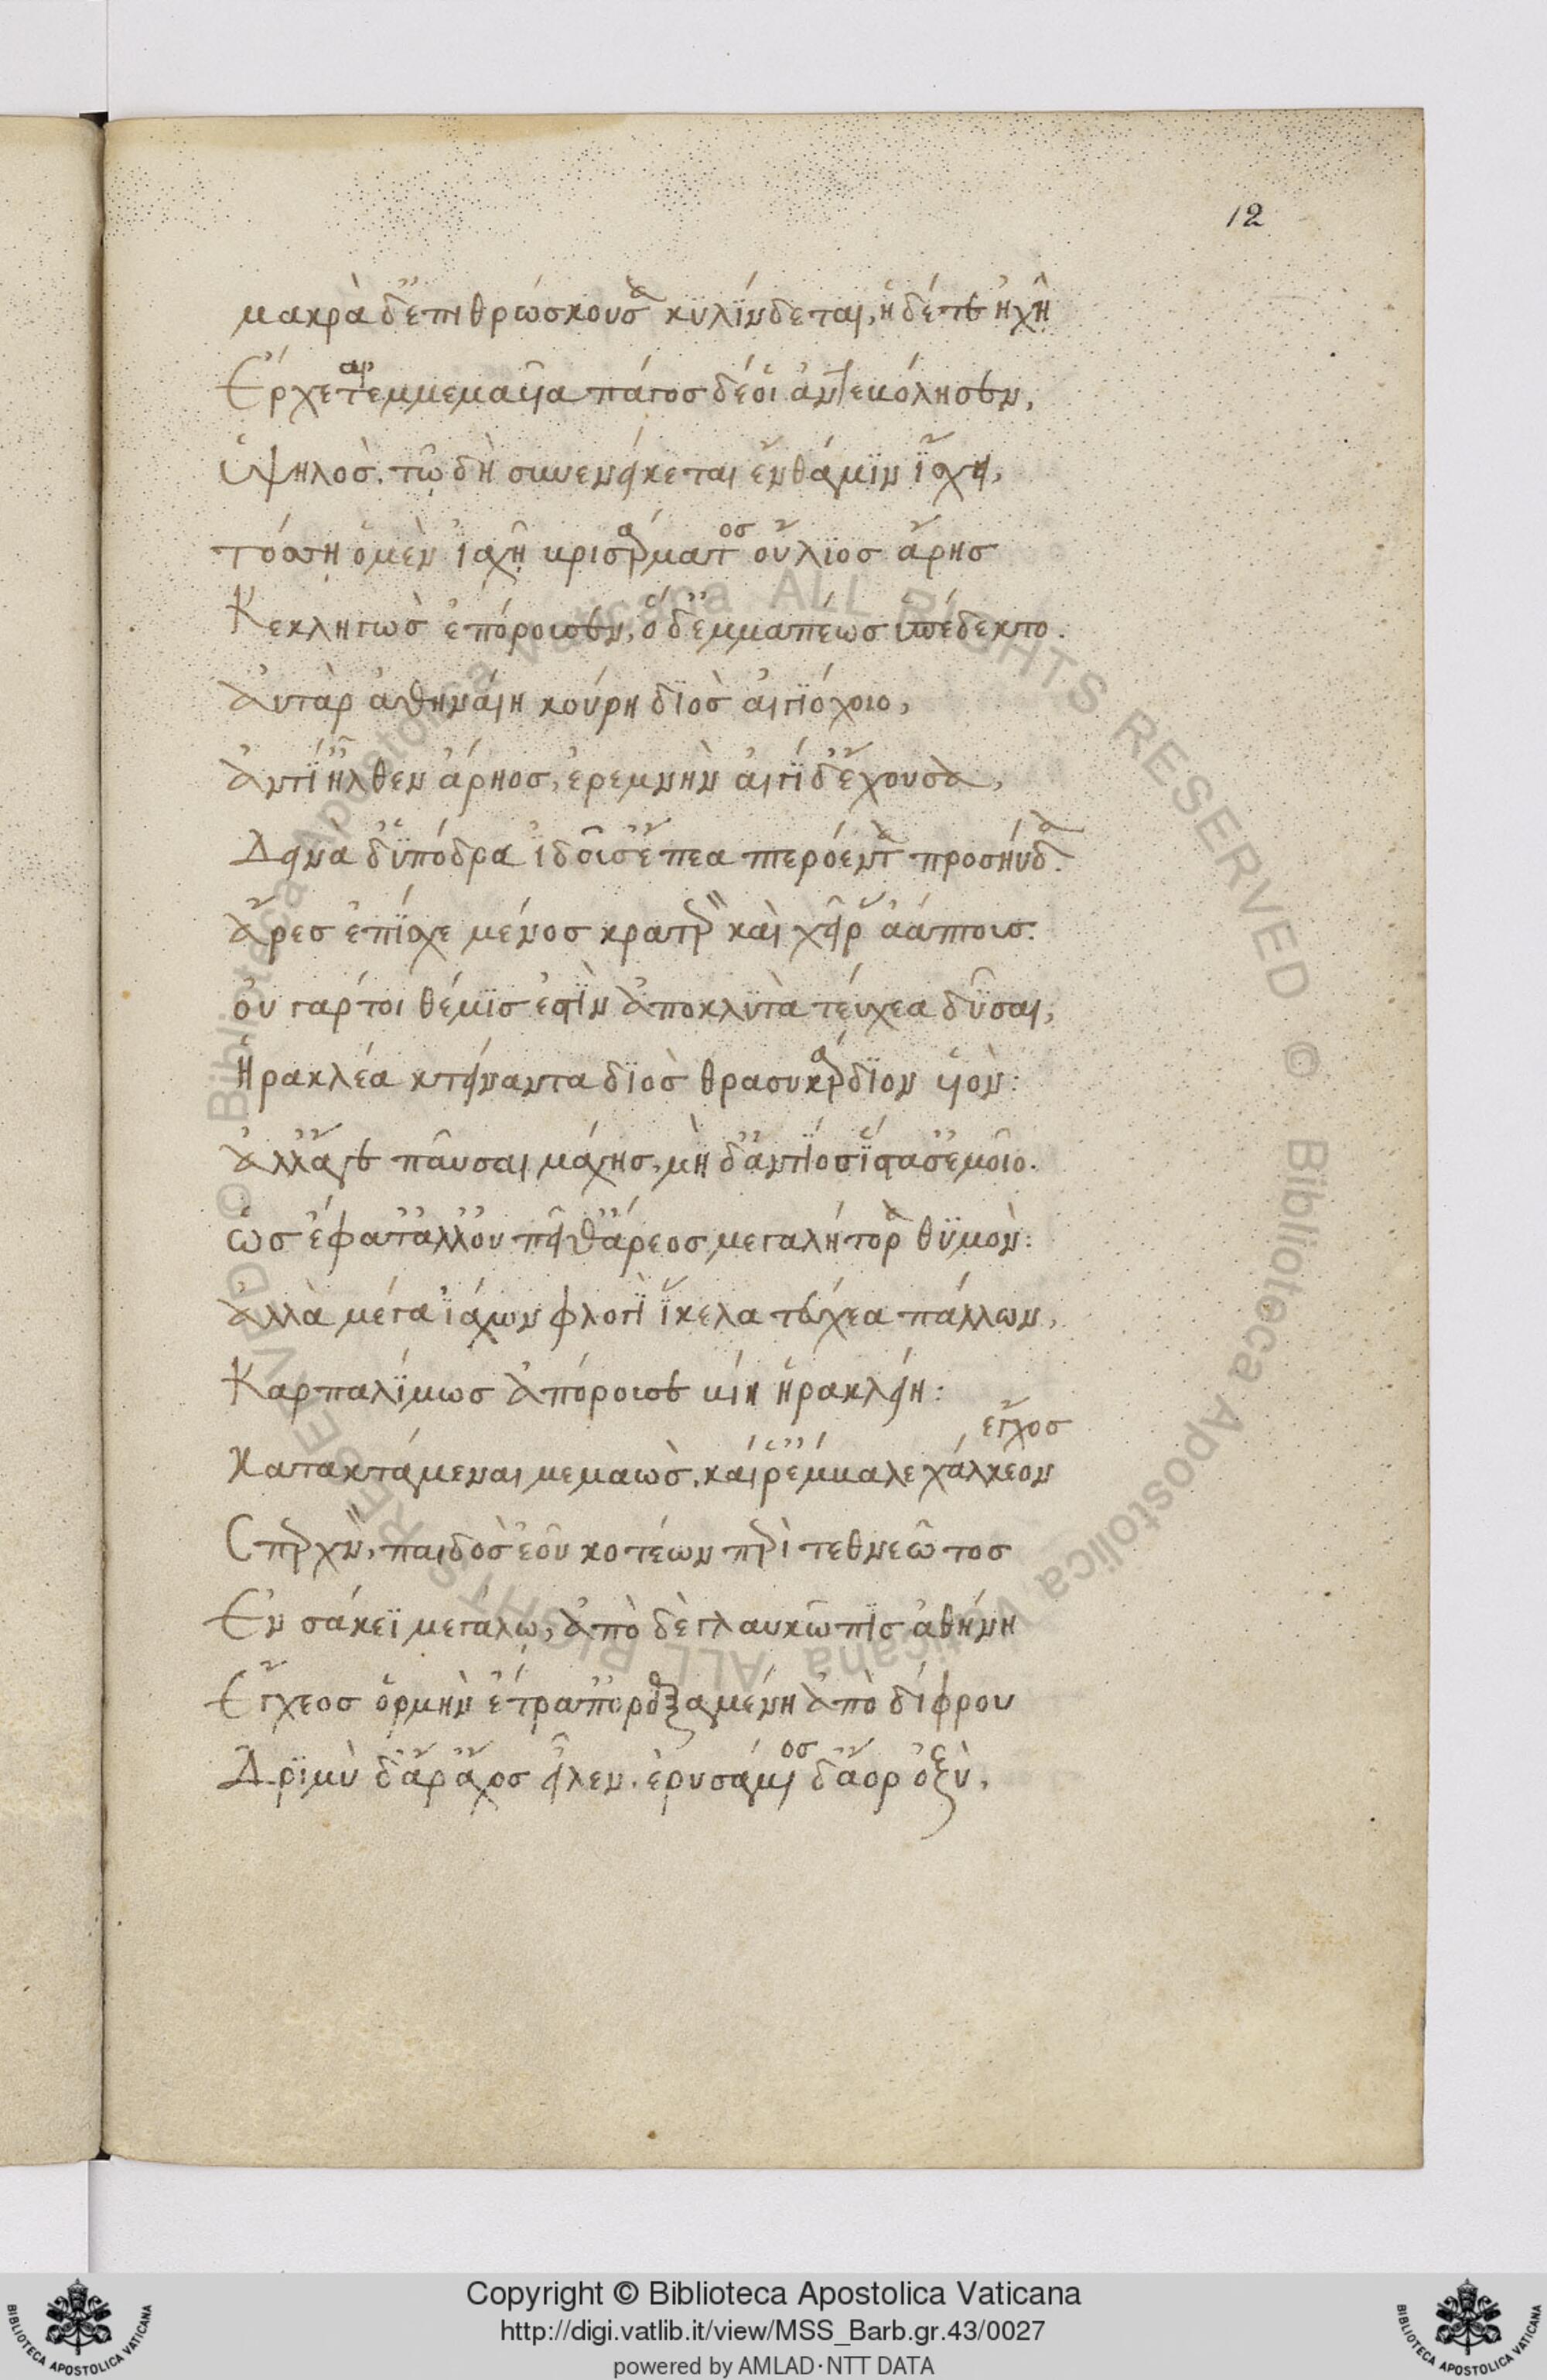 12
μακρὰ δ' ἐπιθρώσκουσα κϋλΐνδεται, ἡ δέ τε ἠχῇ
Ἔρχεται ἐμμεμαυῖα πάγος δέ οἱ ἀντεκόλησεν,
ὑψηλὸς. τῷ δὴ συνενείκεται ἔνθά μιν ἴσχει,
τόσση ὁ μὲν ἰαχῇ κρισάρματος οὔλϊος ἄρης
Κεκληγὼς ἐπόρουσεν, ὁ δ' ἐμμαπέως ὑπέδεκτο.
Ἀυτὰρ ἀθηναίη κούρη δϊὸς ἀιγϊόχοιο,
Ἀντί' ἦλθεν ἄρηος, ἐρεμνὴν ἀιγίδ' ἔχουσα,
Δεινὰ δ' ὑπόδρα ἰδοῖσ' ἔπεα πτερόεντα προσήυδα.
Ἆρες ἐπίσχε μένος κρατερὸν καὶ χεῖρας ἀάπτους.
ὀυ γάρ τοι θέμϊς ἐστὶν ἀπὸ κλυτὰ τέυχεα δῦσαι,
Ἡρακλέα κτείναντα δϊὸς θρασυκάρδϊον υἱὸν:
Ἀλλ' ἄγε παῦσαι μάχης, μὴ δ' ἀντίος ἵστασ' ἐμοῖο.
ὡς ἔφατ' ἀλλ' ὀυ πεῖθ' ἄρεος μεγαλήτορα θϋμὸν:
Ἀλλὰ μέγα ἰάχων φλογῒ ἴκελα τέυχεα πάλλων,
Καρπαλΐμως ἀπόρουσε βίη ἡρακλείη:
ἔγχος
Κατακτάμεναι μεμαὼς, καί ῥ' ἔμβαλε χάλκεον
Σπερχνὸν, παιδὸς ἑοῦ κοτέων περὶ τεθνεῶτος
Ἐν σάκεϊ μεγάλῳ, ἀπὸ δὲ γλαυκῶπϊς ἀθήνη
Ἔγχεος ὁρμὴν ἔτραπ' ὀρεξαμένη ἀπὸ δίφρου
Δρϊμὺ δ' ἄρ' ἄχος εἷλεν. ἐρυσάμενος δ' ἄορ ὀξὺ,
Copyright © Biblioteca Apostolica Vaticana
http://digi.vatlib.it/view/MSS_Barb.gr.43/0027
powered by AMLAD·NTT DATA